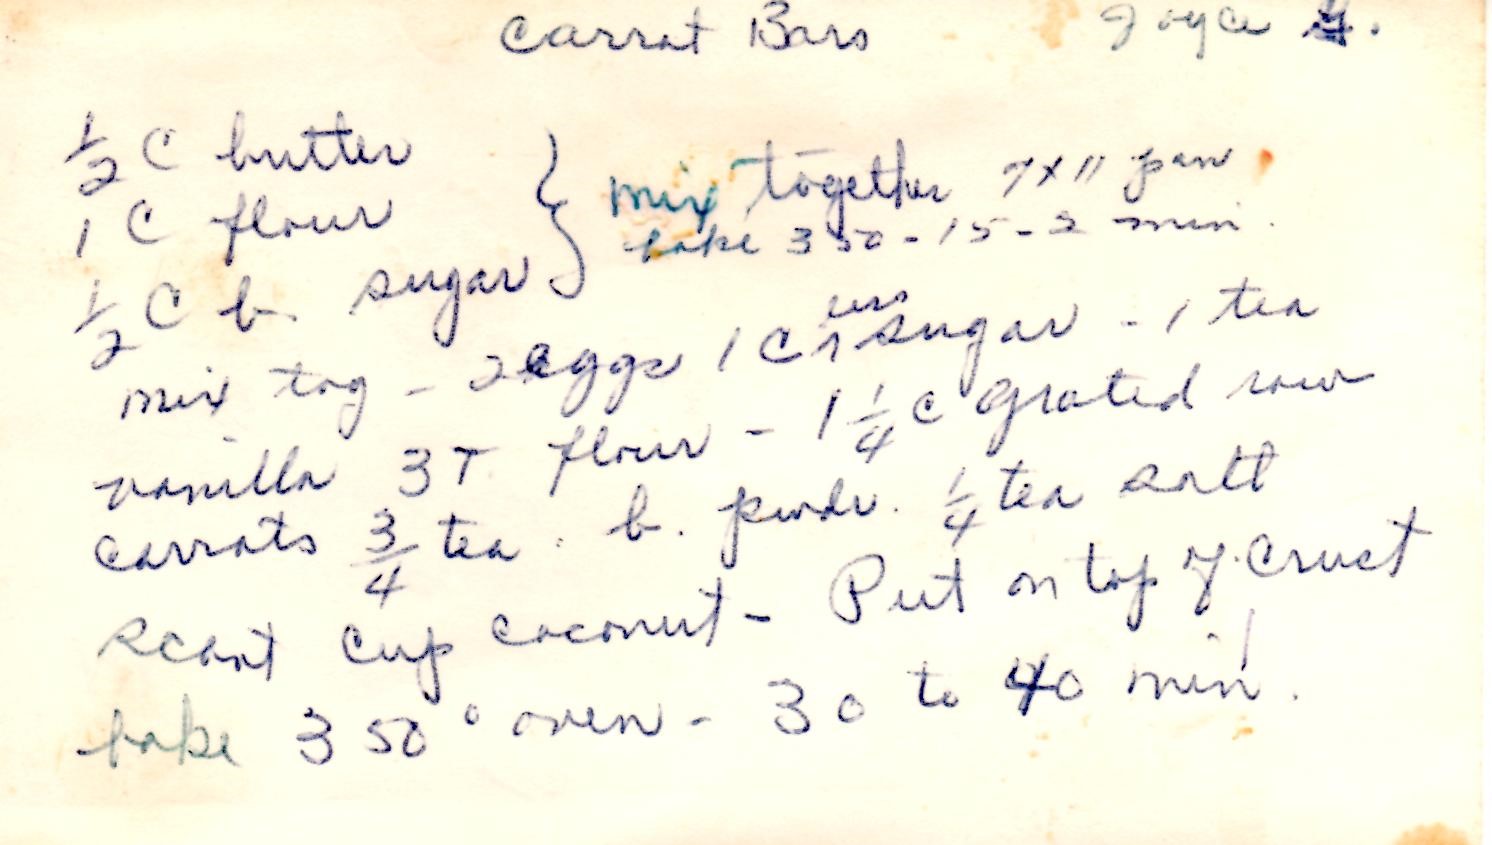 Carrot Bars Joyce G.
1/2 C butter
1 C flour
1/2 C b. sugar
} mix together 7x11 pan
bake 350 - 15 - 2 min.
mix tog - 2 eggs 1 C less sugar - 1 tea
vanilla 3 T. flour - 1 1/4 C grated raw
carrots 3/4 tea. b. powdr. 1/4 tea salt
scant cup coconut - Put on top of crust
bake 350° oven - 30 to 40 min.